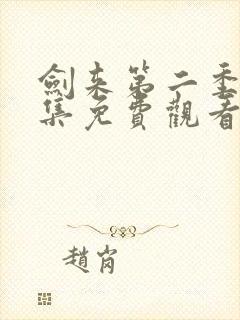 劍来第二季
集免費觀看
趙肖